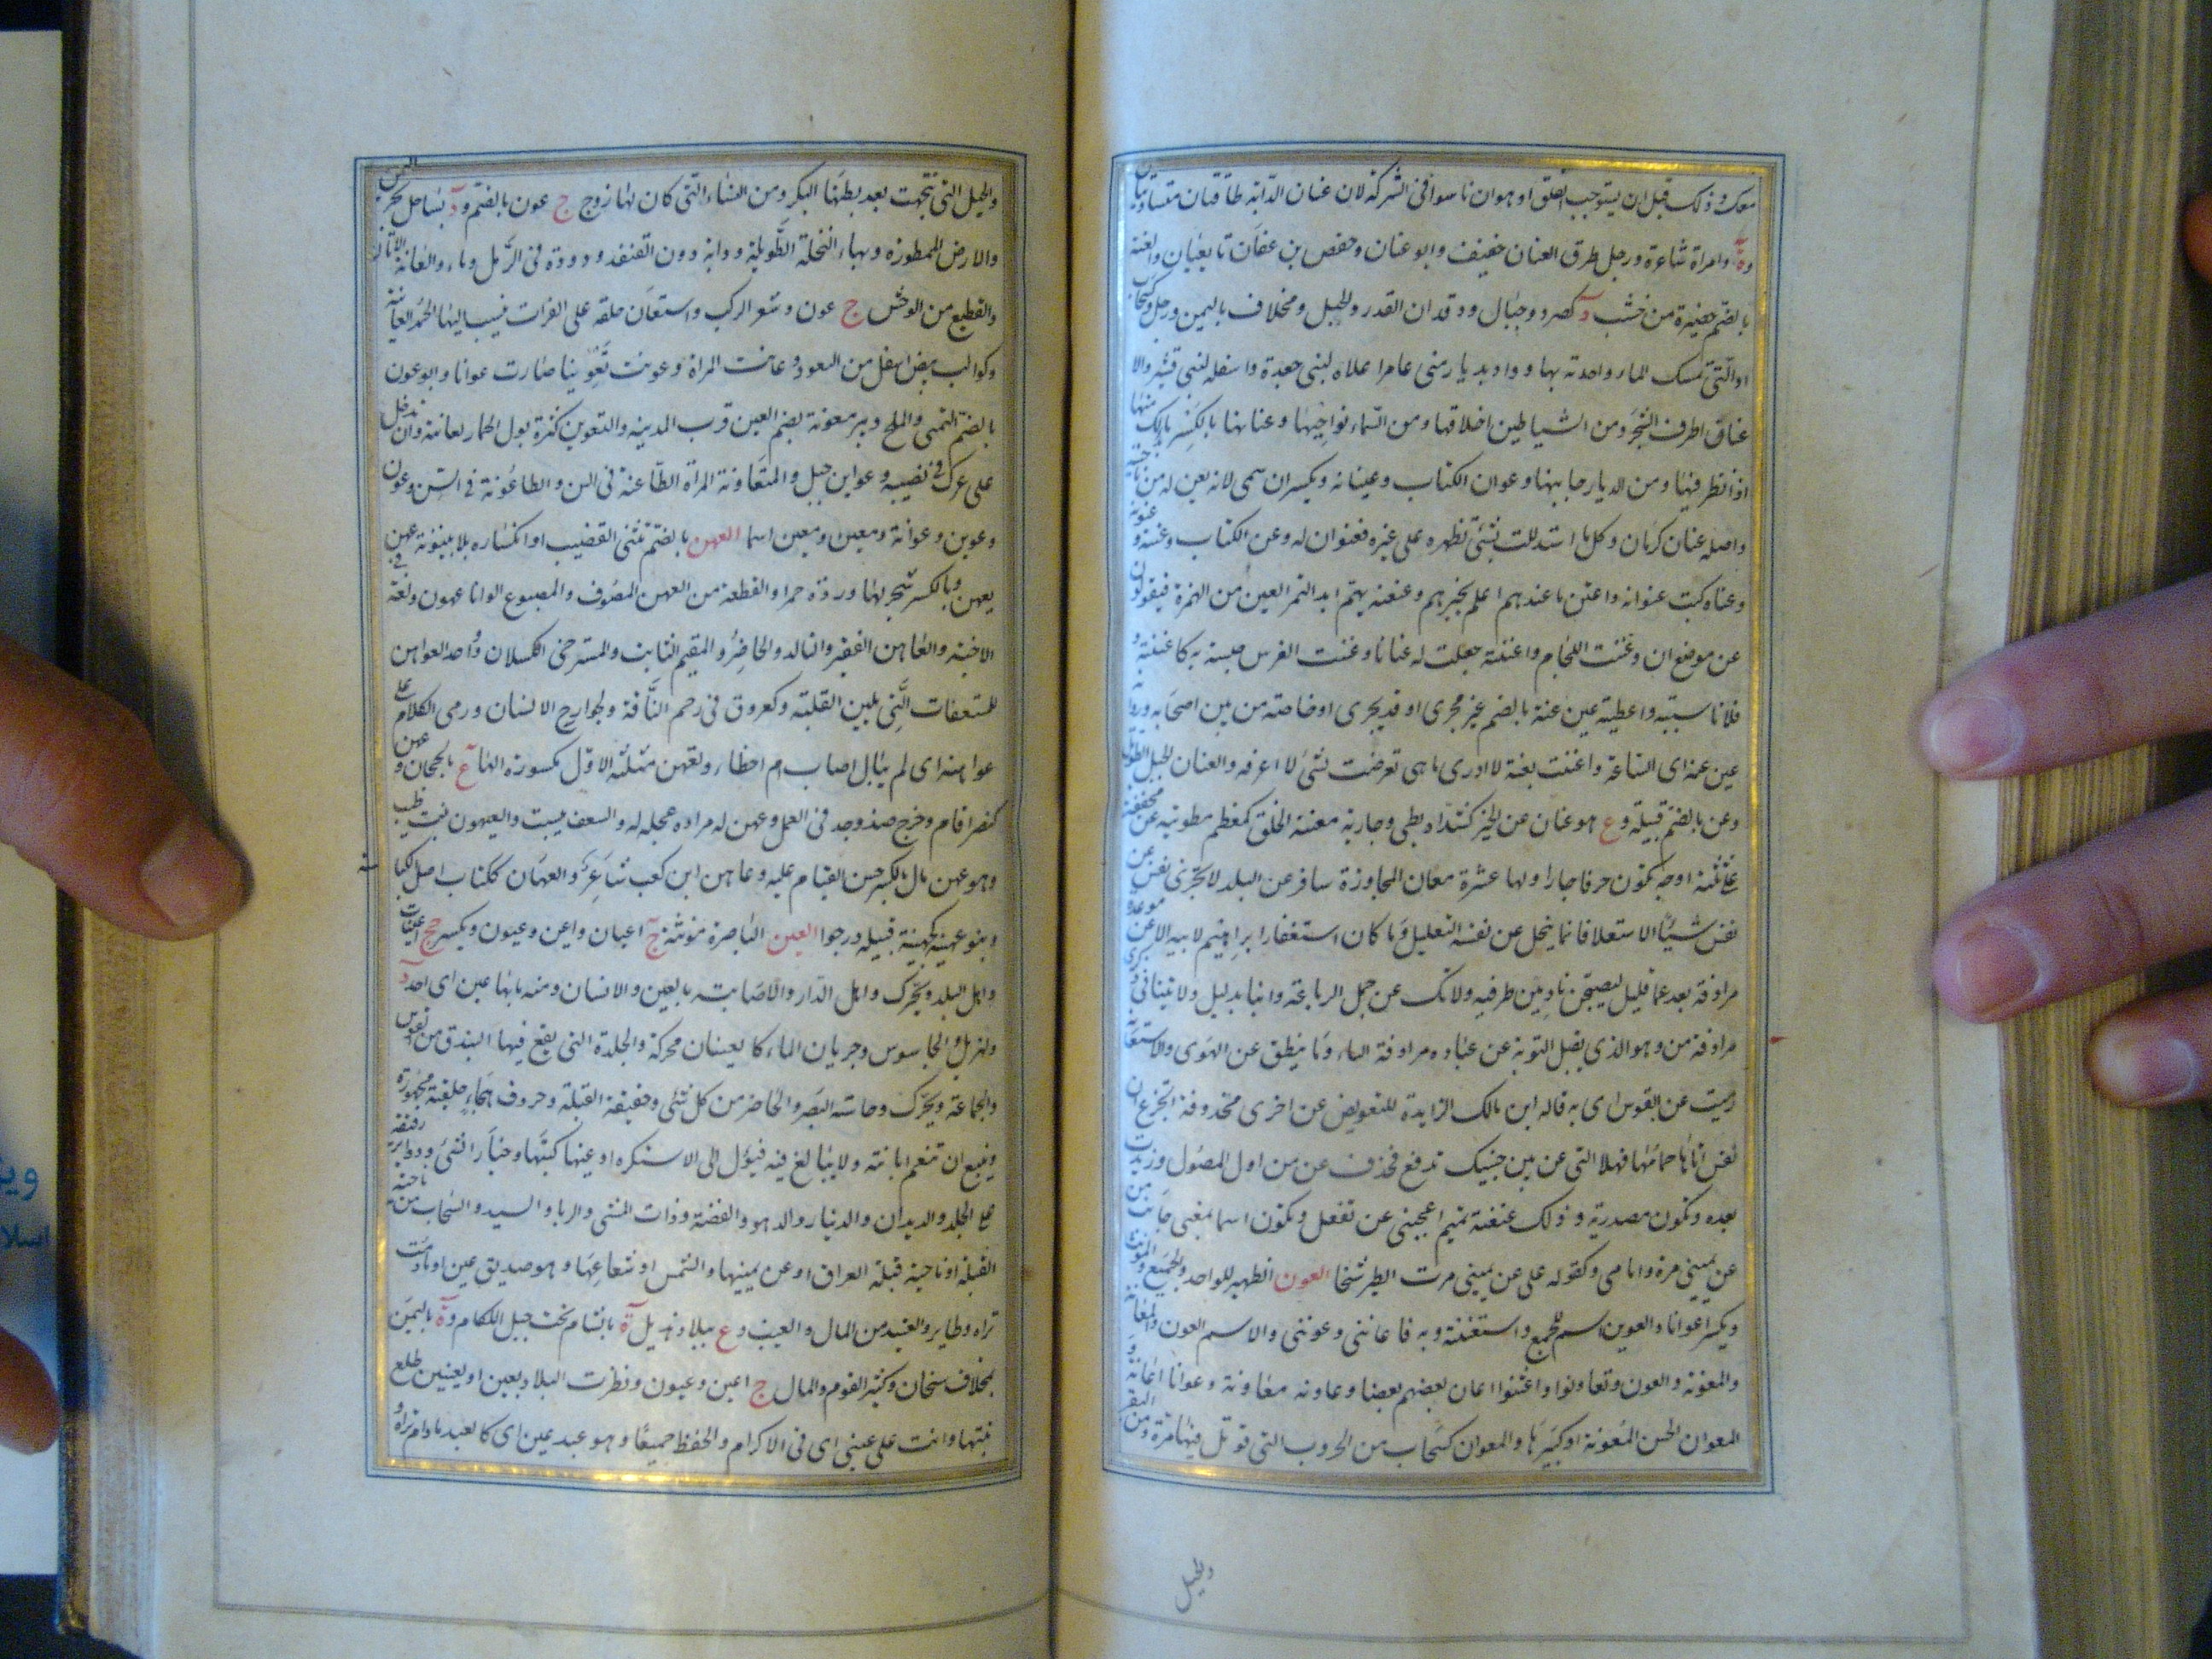 معك وذلك قبل ان يستوجب الغلق او هو ان ناسوا فى الشركة لان عنان الدابة طاقتان متساويتان
وة وامراة شاعرة ورجل طرق العنان خفيف وابو عنان وحفص بن عفان تابعيان والعنة
بالضم حضيرة من خشب د كصرد وجبال ودقدان القدر والحبل ومخلاف باليمن ورجل وكسحاب
او التى تمسك الماء واحدته بهاء وواد بديار بنى عامر اعلاه لبنى جعدة واسفله لبنى قشير والا
عناق اطراف الشجر ومن الشياطين اخلاقها ومن السماء نواحيها وعنانها بالكسر ما بدا لك منها
اذا نظر فيها ومن الديار جانبها وعوان الكتاب وعينانه ويكسران سمى لانه يعن له من ناحيته
واصله عنان كرمان وكل ما استدللت بشئ تظهره على غيره فعنوان له وعن الكتاب وعننه وعنونه
وعناه كتب عنوانه واعتن ما عندهم اعلم بخبرهم وعنعنة تميم ابدالتهم العين من الهمزة فيقولون
عن موضع ان وعننت اللجام واعننته جعلت له عنانا وعننت الفرس حبسته به كاعننته و
فلانا سببته واعطيته عين عنة بالضم غير مجرى او قد يجرى او خاصته من بين اصحابه ورايته
عين عنة اى الساعة واعننت بعنة لا ادرى ما هى تعرضت لشئ لا اعرفه والعنان الحبل الطويل
وعن بالضم قبيلة وع وهو عنان عن الخير كشداد بطئ وجارية معننة الخلق كمعظم مطويته عن مخففة
على ثلثة اوجه تكون حرفا جارا ولها عشرة معان المجاوزة سافر عن البلد لا تجزى نفس عن
نفس شيئا الاستعلا فانما يبخل عن نفسه التعليل وما كان استغفار ابراهيم لابيه الا عن موعدة
مرادفة بعد عما قليل ليصبحن نادمين ظرفية ولا تك عن حمل الرباعة وانيا بدليل ولا تنيا فى ذكرى
مرادفة من وهو الذى يقبل التوبة عن عباده مرادفة الباء وما ينطق عن الهوى والاستعانة
رميت عن القوس اى به قاله ابن مالك الزايدة للتعويض عن اخرى محذوفة اتجزع ان
نفس اتاها حمامها فهلا التى عن بين جنبيك تدفع فحذف عن من اول الموصول وزيدت
بعده وتكون مصدرية وذلك عنعنة تميم اعجبنى عن تفعل وتكون اسما بمعنى جانب من
عن يمينى مرة وامامى وكقوله على عن يمينى مرت الطير سنحا العون الظهير للواحد والجمع والمونث
ويكسر اعوانا والعوين اسم للجمع واستعنته وبه فاعاننى وعوننى والاسم العون والمعانة
والمعونة والعون وتعاونوا واعتنوا اعان بعضهم بعضا وعاونه معاونة وعوانا اعانه و
المعوان الحسن المعونة او كثيرها والمعوان كسحاب من الحروب التى قوتل فيها مرة ومن البقر
والخيل
والخيل التى نتجت بعد بطنها البكر ومن النساء التى كان لها زوج ج عون بالضم ود بساحل بحر اليمن
والارض الممطورة وبهاء النخلة الطويلة ودابة دون القنفذ ودودة فى الرمل وماء والعانة الاتان
والقطيع من الوحش ج عون وشعر الركب واستعان حلقه على الفرات ينسب اليها الخمر العانية
وكواكب بيض اسفل من السعود وعانت المراة وعونت تعوينا صارت عوانا وابو عون
بالضم التمر والملح وبئر معونة بضم العين قرب المدينة والتعوين كثرة بول الحمار لعانته وان تدخل
على غيرك فى نصيبه وعواين جبل والمتعاونة المراة الطاعنة فى السن والطاعونة فى السن وعون
وعوين وعوانة ومعين ومعين اسماء العهن بالضم تثنى القضيب او انكساره بلا بينونة عهن
يعهن وبالكسر شجر لها وردة حمرا والقطعة من العهن الصوف والمصبوغ الوانا عهون ولغة فى
الاحنة والعاهن الفقير والتالد والحاضر والمقيم الثابت والمسترخى الكسلان واحد العواهن
للسعفات التى يلين القلبة وكعروق فى رحم الناقة ولجوارح الانسان ورمى الكلام على
عواهنه اى لم يبال اصاب ام اخطاء ولعهن مثلثة الاول مكسورة الهاء ع بالجحان وعهن
كنصر اقام وخرج ضد وجد فى العمل وعهن له مراده عجله له والسعف يبست والعيهون نبت طيب
وهو عهن مال بالكسر حسن القيام عليه وعاهن ابن كعب شاعر والعهان ككتاب اصل الكباسة
وبنو عهينة كجهينة قبيلة درجوا العين الباصرة مونثة ج اعيان واعين وعيون ويكسر جج اعينات
واهل البلد ويحرك واهل الدار والاصابة بالعين والانسان ومنه ما بها عين اى احد د
ولهزيل والجاسوس وجريان الماء كالعينان محركة والجلدة التى يقع فيها البندق من القوس
والجماعة ويحرك وحاسة البصر والحاضر من كل شئ وحقيقة القبلة وحروف هجاء حلقية مجهورة
وينبغى ان تنعم ابانته ولا يبالغ فيه فيؤل الى الاستكراه وعينها كتبها وخيار الشئ ودواير رقيقة
على الجلد والديدبان والدينار والذهب والفضة وذات الشئ والربا والسيد والسحاب من ناحية
القبلة او ناحية قبلة العراق او عن يمينها والشمس او شعاعها وهو صديق عين اى ما دمت
تراه وطاير والعتيد من المال والعيب وع ببلاد هذيل ة بالشام تحت جبل اللكام وة باليمن
بمخلاف سنحان وكثير القوم والمال ج اعين وعيون ونظرت البلاد بعين او بعينين طلع
نبتها وانت على عينى اى فى الاكرام والحفظ جميعا وهو عبد عين اى كالعبد مادام تراه و